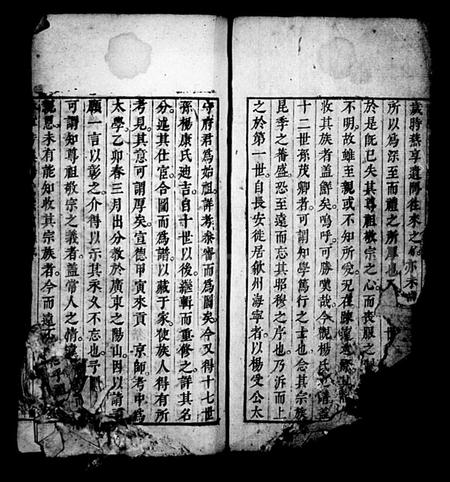 族時燕享遺問往來之
所以為深至而禮之所厚也
於是旣已失其尊祖敬宗之心而喪服之
不明故雖至親或不知所究况在踈遠
收其族者葢鮮矣嗚呼可勝嘆哉今觀楊氏
十二世孫茂卿者可謂知學篤行之士也念其宗族
昆季之蕃盛恐至遠而忘其昭穆之序也乃泝而上
之於第一世自長安徙居歙州海寧者以楊受公太
守府君為始祖詳考參書而為圖矣今又得十七世
孫楊康氏廼吉自十世以後繼輯而重修之詳其名
分述其仕宦合圖而為譜以藏于家使族人得有所
考見其意可謂厚矣宣德甲寅來貢京師考中為
太學乙卯春三月出分教於廣東之陽山因以請
顧一言以彰之介得以示其永久不忘也予
可謂知尊祖敬宗之義者葢常人之情
親恩未有能知收其宗族者今而遠